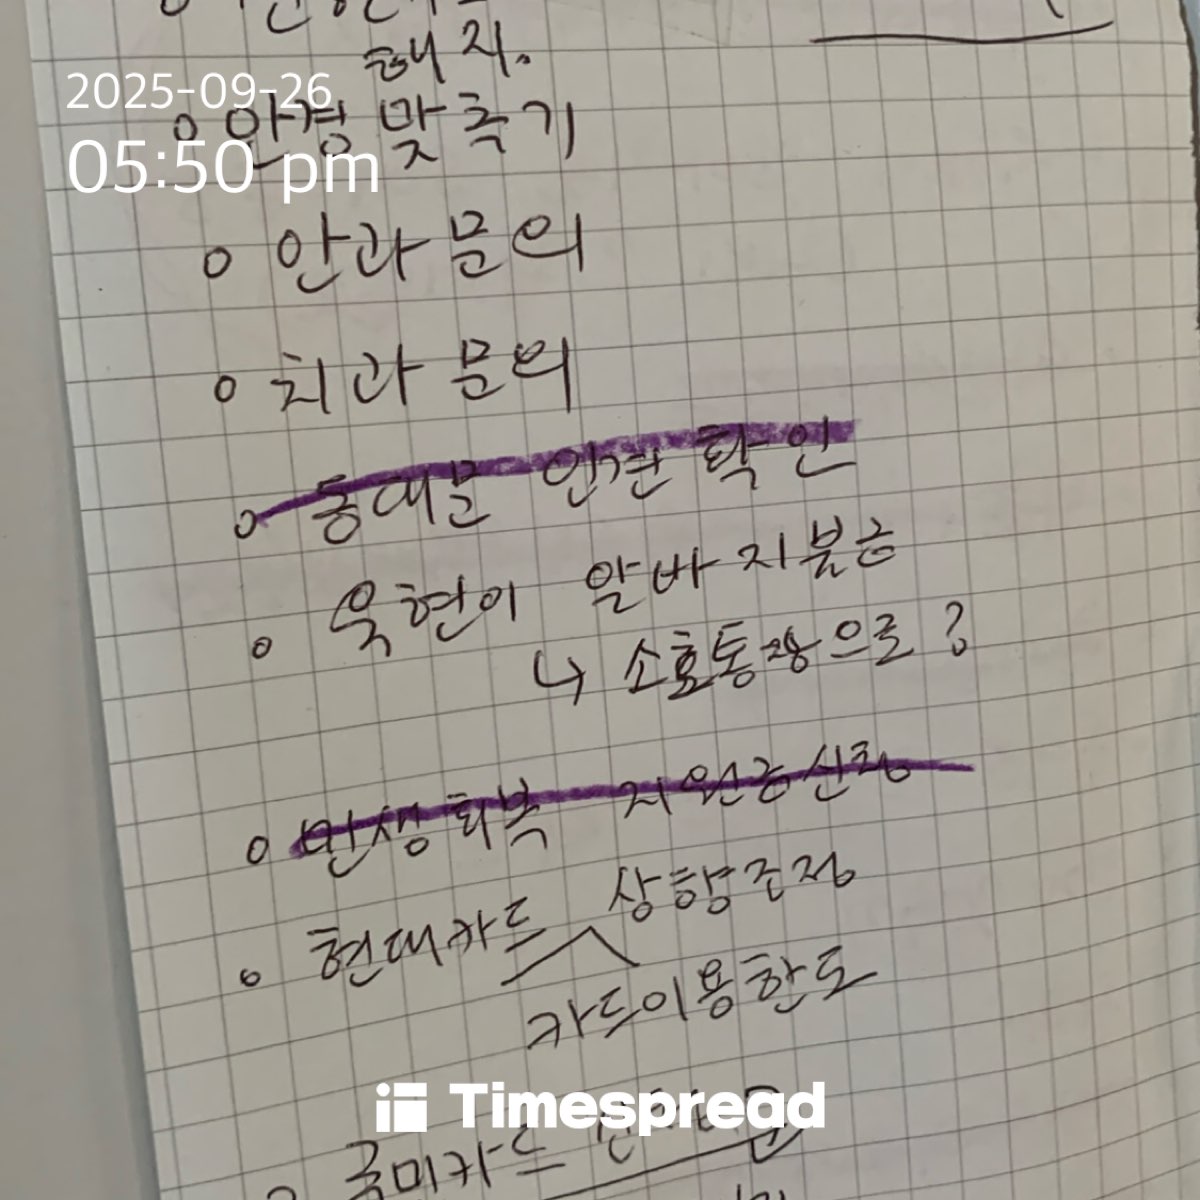 해지.
2025-09-26
안경 맞추기
05:50 pm
안과 문의
치과 문의
동대문 안건 확인
욱현이 알바 지불금
↳ 소호통장으로?
민생회복 지원금신청
현대카드 상향조정
카드이용한도
Timespread
국미카드